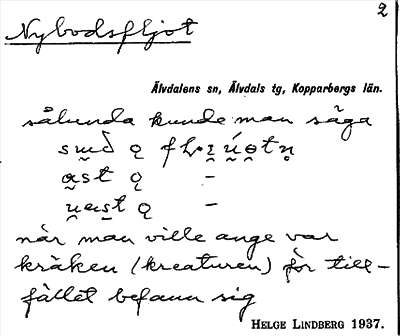 2
Nybodsfljot
Älvdalens sn, Älvdals tg, Kopparbergs län.
sålunda kunde man säga
når man ville ange var
kräken (kreaturen) för till-
fället befann sig
HELGE LINDBERG 1937.